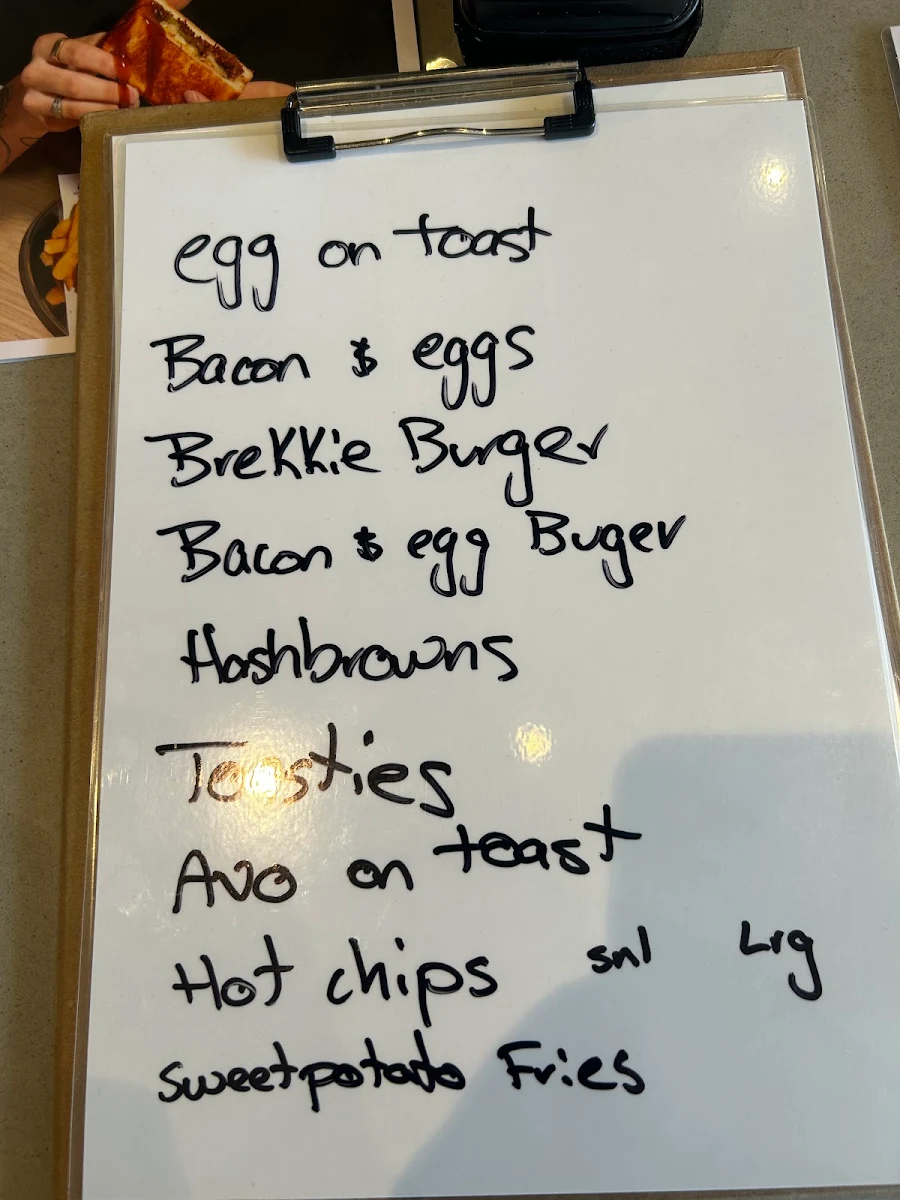 egg on toast
Bacon $ eggs
BreKKie Burger
Bacon $ egg Buger
Hashbrowns
Toasties
Avo on toast
Hot chips snl Lrg
sweetpotato Fries